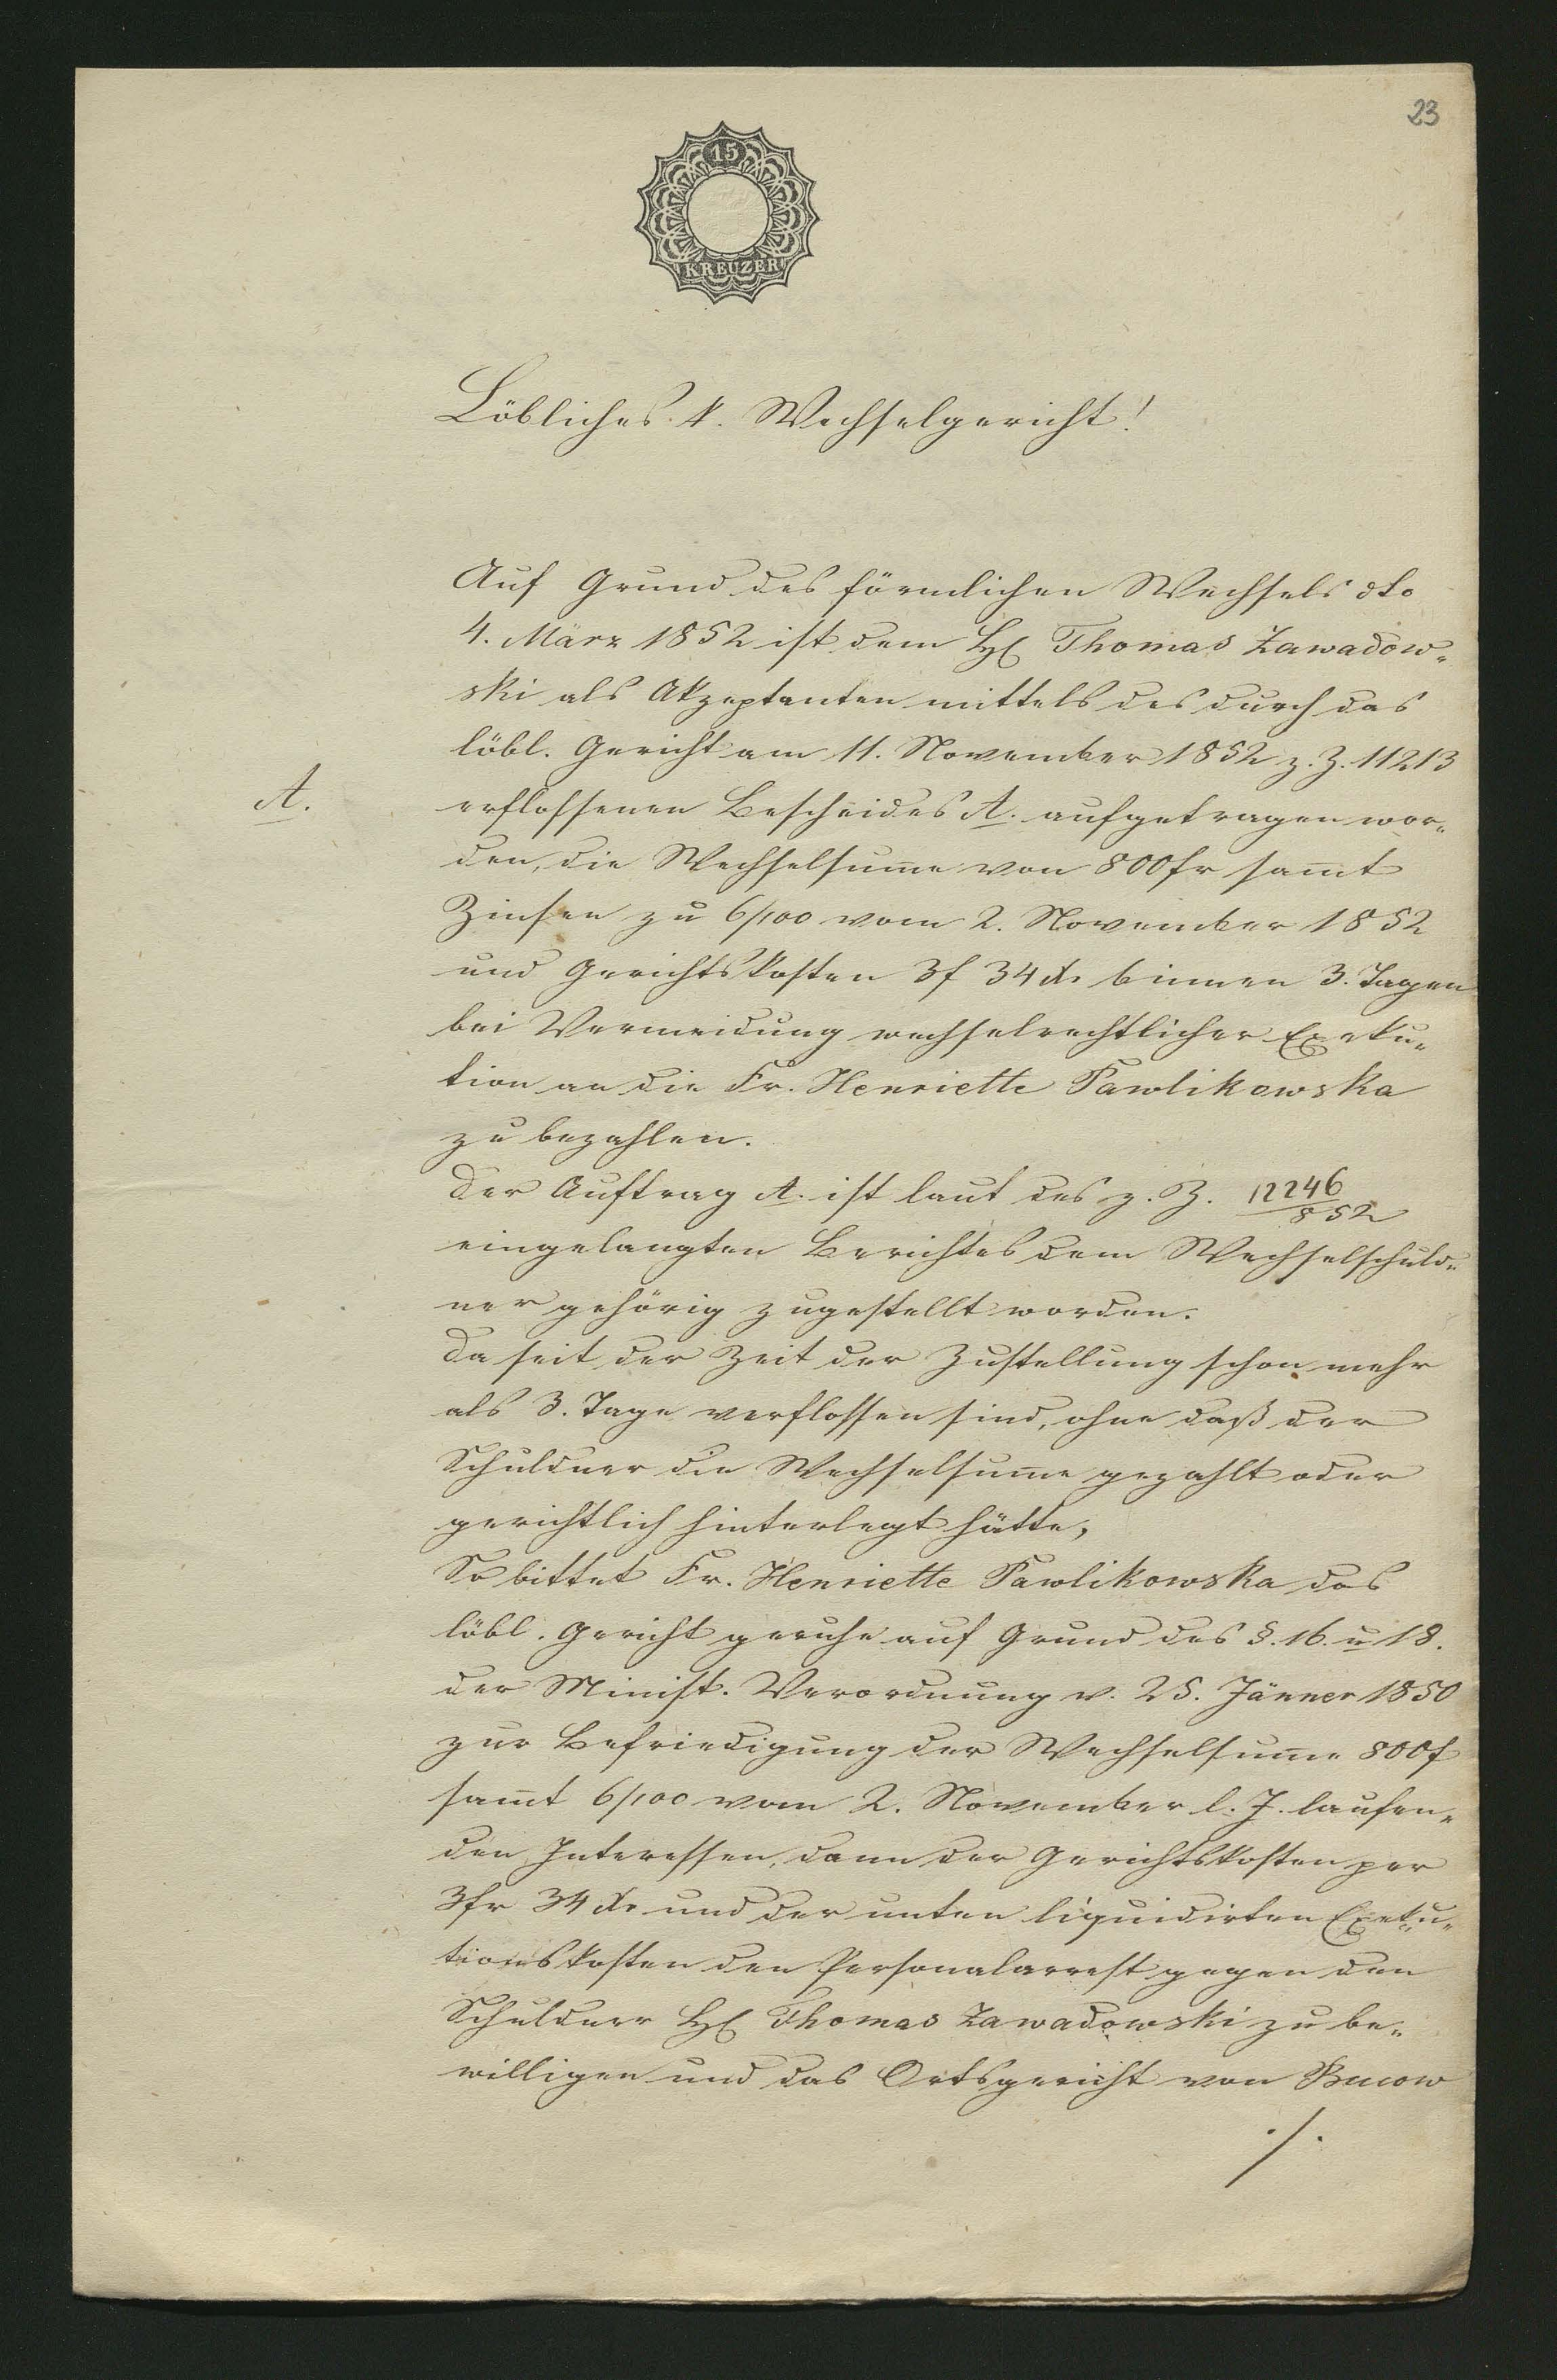 23
15
KREUZER
Löbliches k. Wechselgericht!
Auf Grund des förmlichen Wechsels dto
4. März 1852 ist dem H Thomas Zawadow-
ski als Akzeptanten mittels des durch das
löbl. Gericht am 11. November 1852 z. Z. 11213
A.
erflossenen Bescheides A. aufgetragen wor-
den, die Wechselsum̄e von 800 fr sam̄t
Zinsen zu 6/100 vom 2. November 1852
und Gerichtskosten 3f 34 xr binnen 3. Tagen
bei Vermeidung wechselrechtlicher Exeku-
tion an die Fr. Henriette Pawlikowska
zu bezahlen.
Der Auftrag A. ist laut des z. Z. 12246/852
eingelangten Berichtes dem Wechselschuld-
ner gehörig zugestellt worden.
Da seit der Zeit der Zustellung schon mehr
als 3. Tage verflossen sind, ohne daß der
Schuldner die Wechselsum̄e gezahlt oder
gerichtlich hinterlegt hätte,
So bittet Fr. Henriette Pawlikowska das
löbl. Gericht geruhe auf Grund des §. 16. u 18.
der Minist. Verordnung v. 25. Jänner 1850
zur Befriedigung der Wechselsum̄e 800f
sam̄t 6/100 vom 2. November l. J. laufen-
den Interessen, dann der Gerichtskosten per
3fr 34 xr und der unten liquidirten Exeku-
tionskosten den Personalarrest gegen den
Schuldner H Thomas Zawadowski zu be-
willigen und das Ortsgericht von
./.